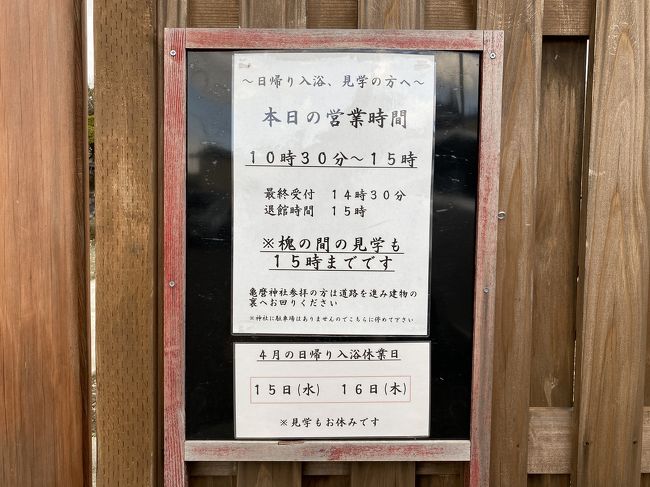 ～日帰り入浴、見学の方へ～
本日の営業時間
１０時３０分～１５時
最終受付　１４時３０分
退館時間　１５時
※槐の間の見学も
１５時までです
亀麿神社参拝の方は道路を進み建物の
裏へお回りください
※神社に駐車場はありませんのでこちらに停めて下さい
４月の日帰り入浴休業日
１５日(水)　１６日(木)
※見学もお休みです